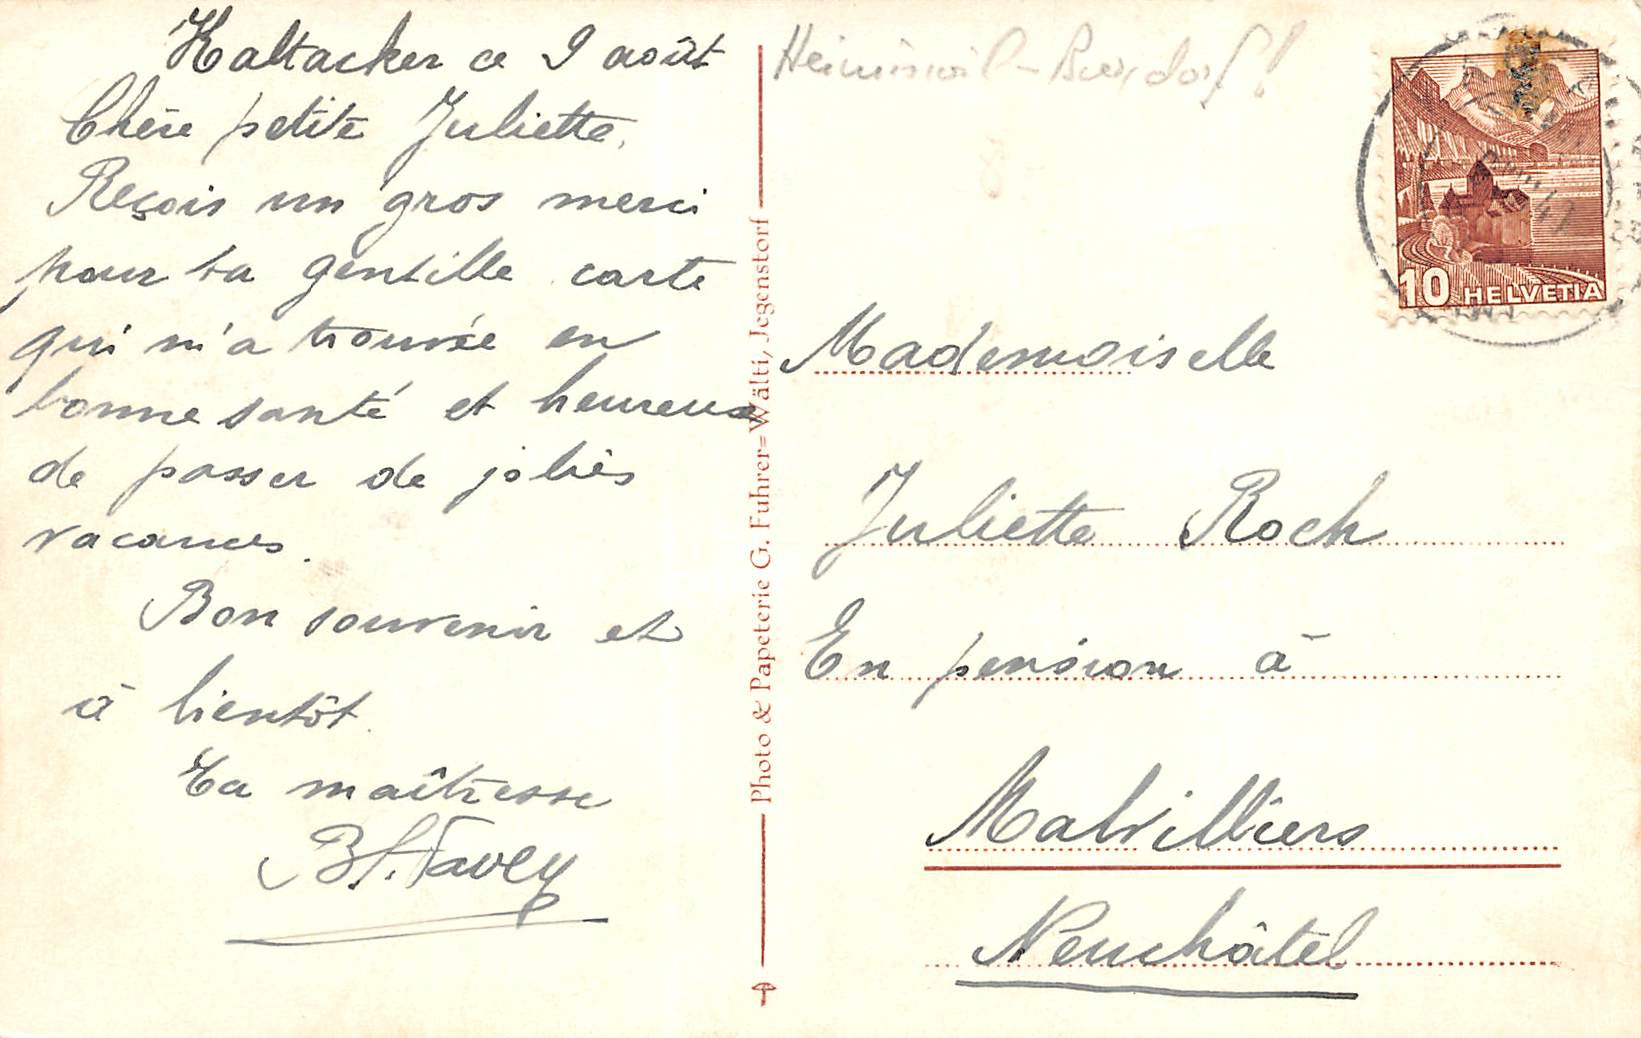 Kaltacker ce 9 août
Chère petite Juliette,
Reçois un gros merci
pour ta gentille carte
qui m'a trouvée en
bonne santé et heureuse
de passer de jolies
vacances.
Bon souvenir et
à bientôt.
Ta maîtresse
Photo & Papeterie G. Fuhrer=Wälti, Jegenstorf
Heimiswil - Burgdorf!
10 HELVETIA
Mademoiselle
Juliette Roch
En pension à
Malvilliers
Neuchâtel